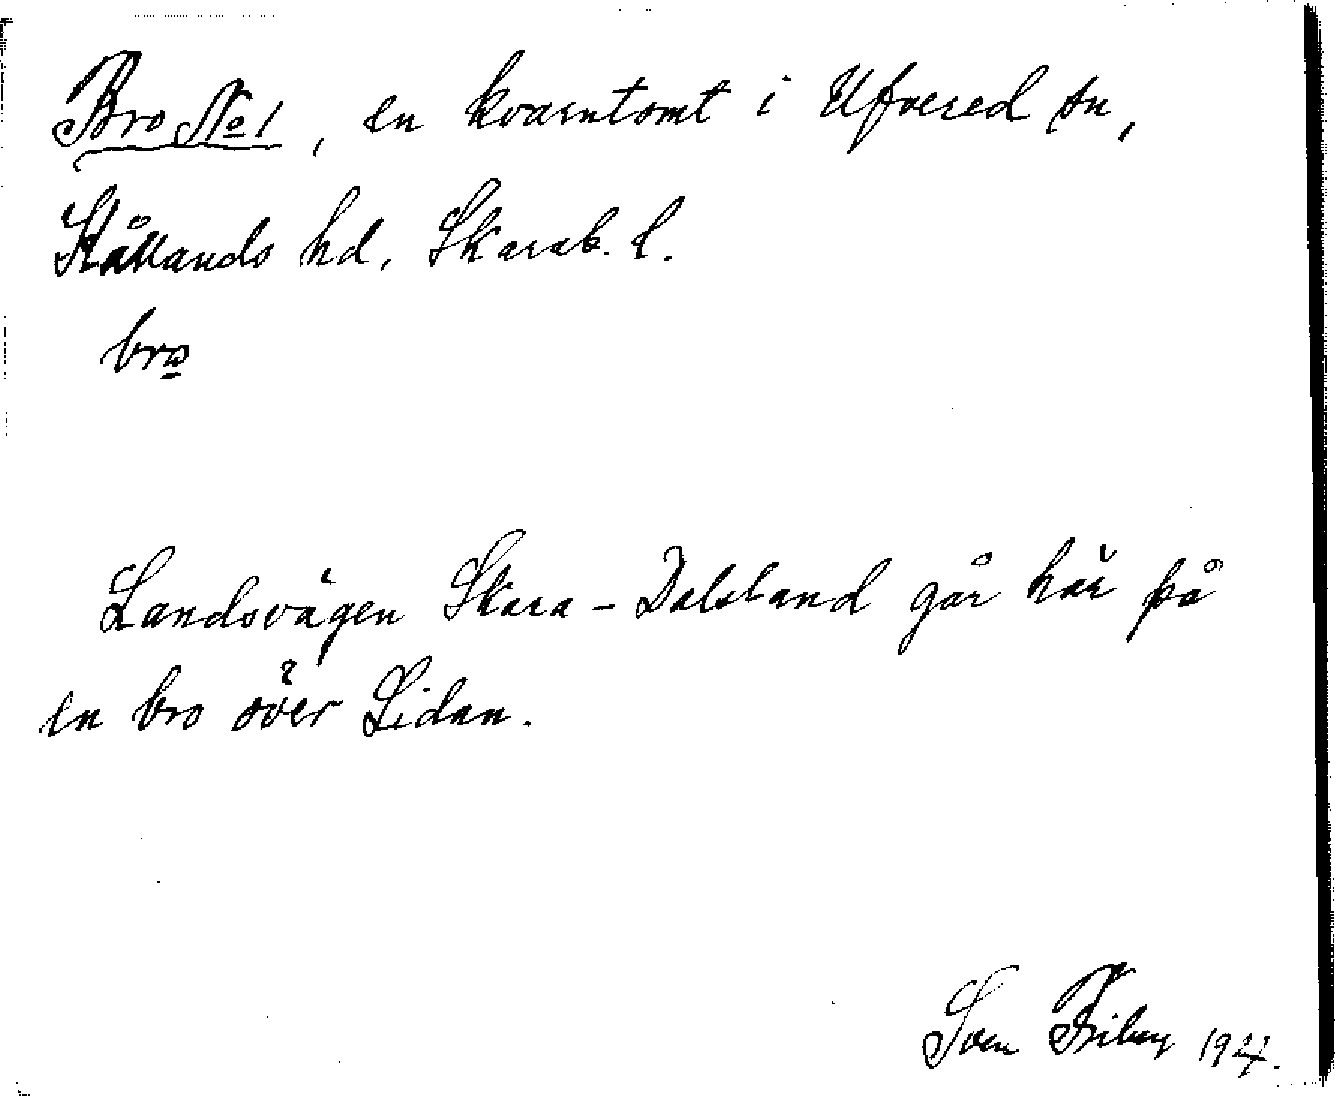 Bro No 1, en kvarntomt i Ufvered sn,
Kållands hd, Skarab. l.
bro
Landsvägen Skara - Dalsland går här på
en bro över Lidan.
Sven Friberg